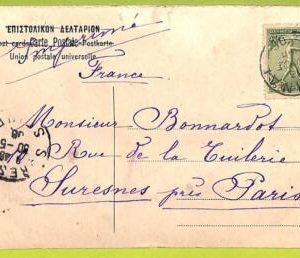 ἘΠΙΣΤΟΛΙΚΟΝ ΔΕΛΤΑΡΙΟΝ
Post card Carte Postale Postkarte
Union postale universelle
Imprimé
France
Monsieur Bonnardot
Rue de la Tuilerie
Suresnes près Paris